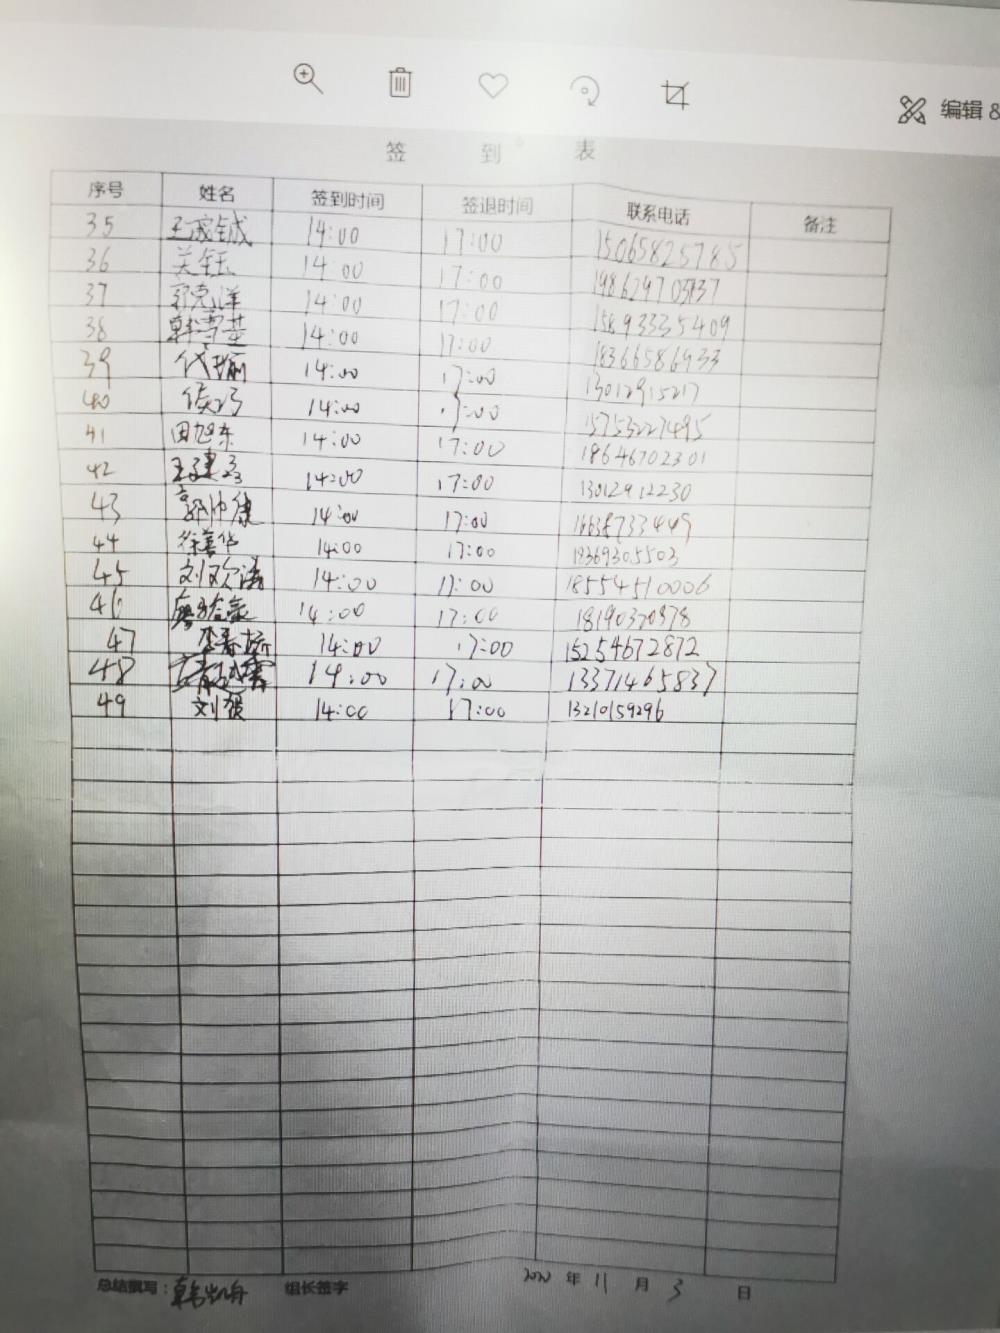 编辑 &
签 到 表
序号 姓名 签到时间 签退时间 联系电话 备注
35 王家铖 14:00 17:00 15065825785
36 关钰 14:00 17:00
37 郭克洋 14:00 17:00 15893335409
38 韩雪基 14:00 17:00 18366586933
39 代瑜 14:00 17:00 13012915217
40 14:00 17:00 15753227495
41 田旭东 14:00 17:00 18646702301
42 14:00 17:00 13012912230
43 郭帅健 14:00 17:00 16638733449
44 徐善华 14:00 17:00 18369305503
45 刘汉滨 14:00 17:00 18554510006
46 14:00 17:00 18190370878
47 李春桥 14:00 17:00 15254672872
48 14:00 17:00 13371465837
49 刘贺 14:00 17:00 13210159296
总结撰写： 韩凯舟 组长签字 2020 年 11 月 3 日